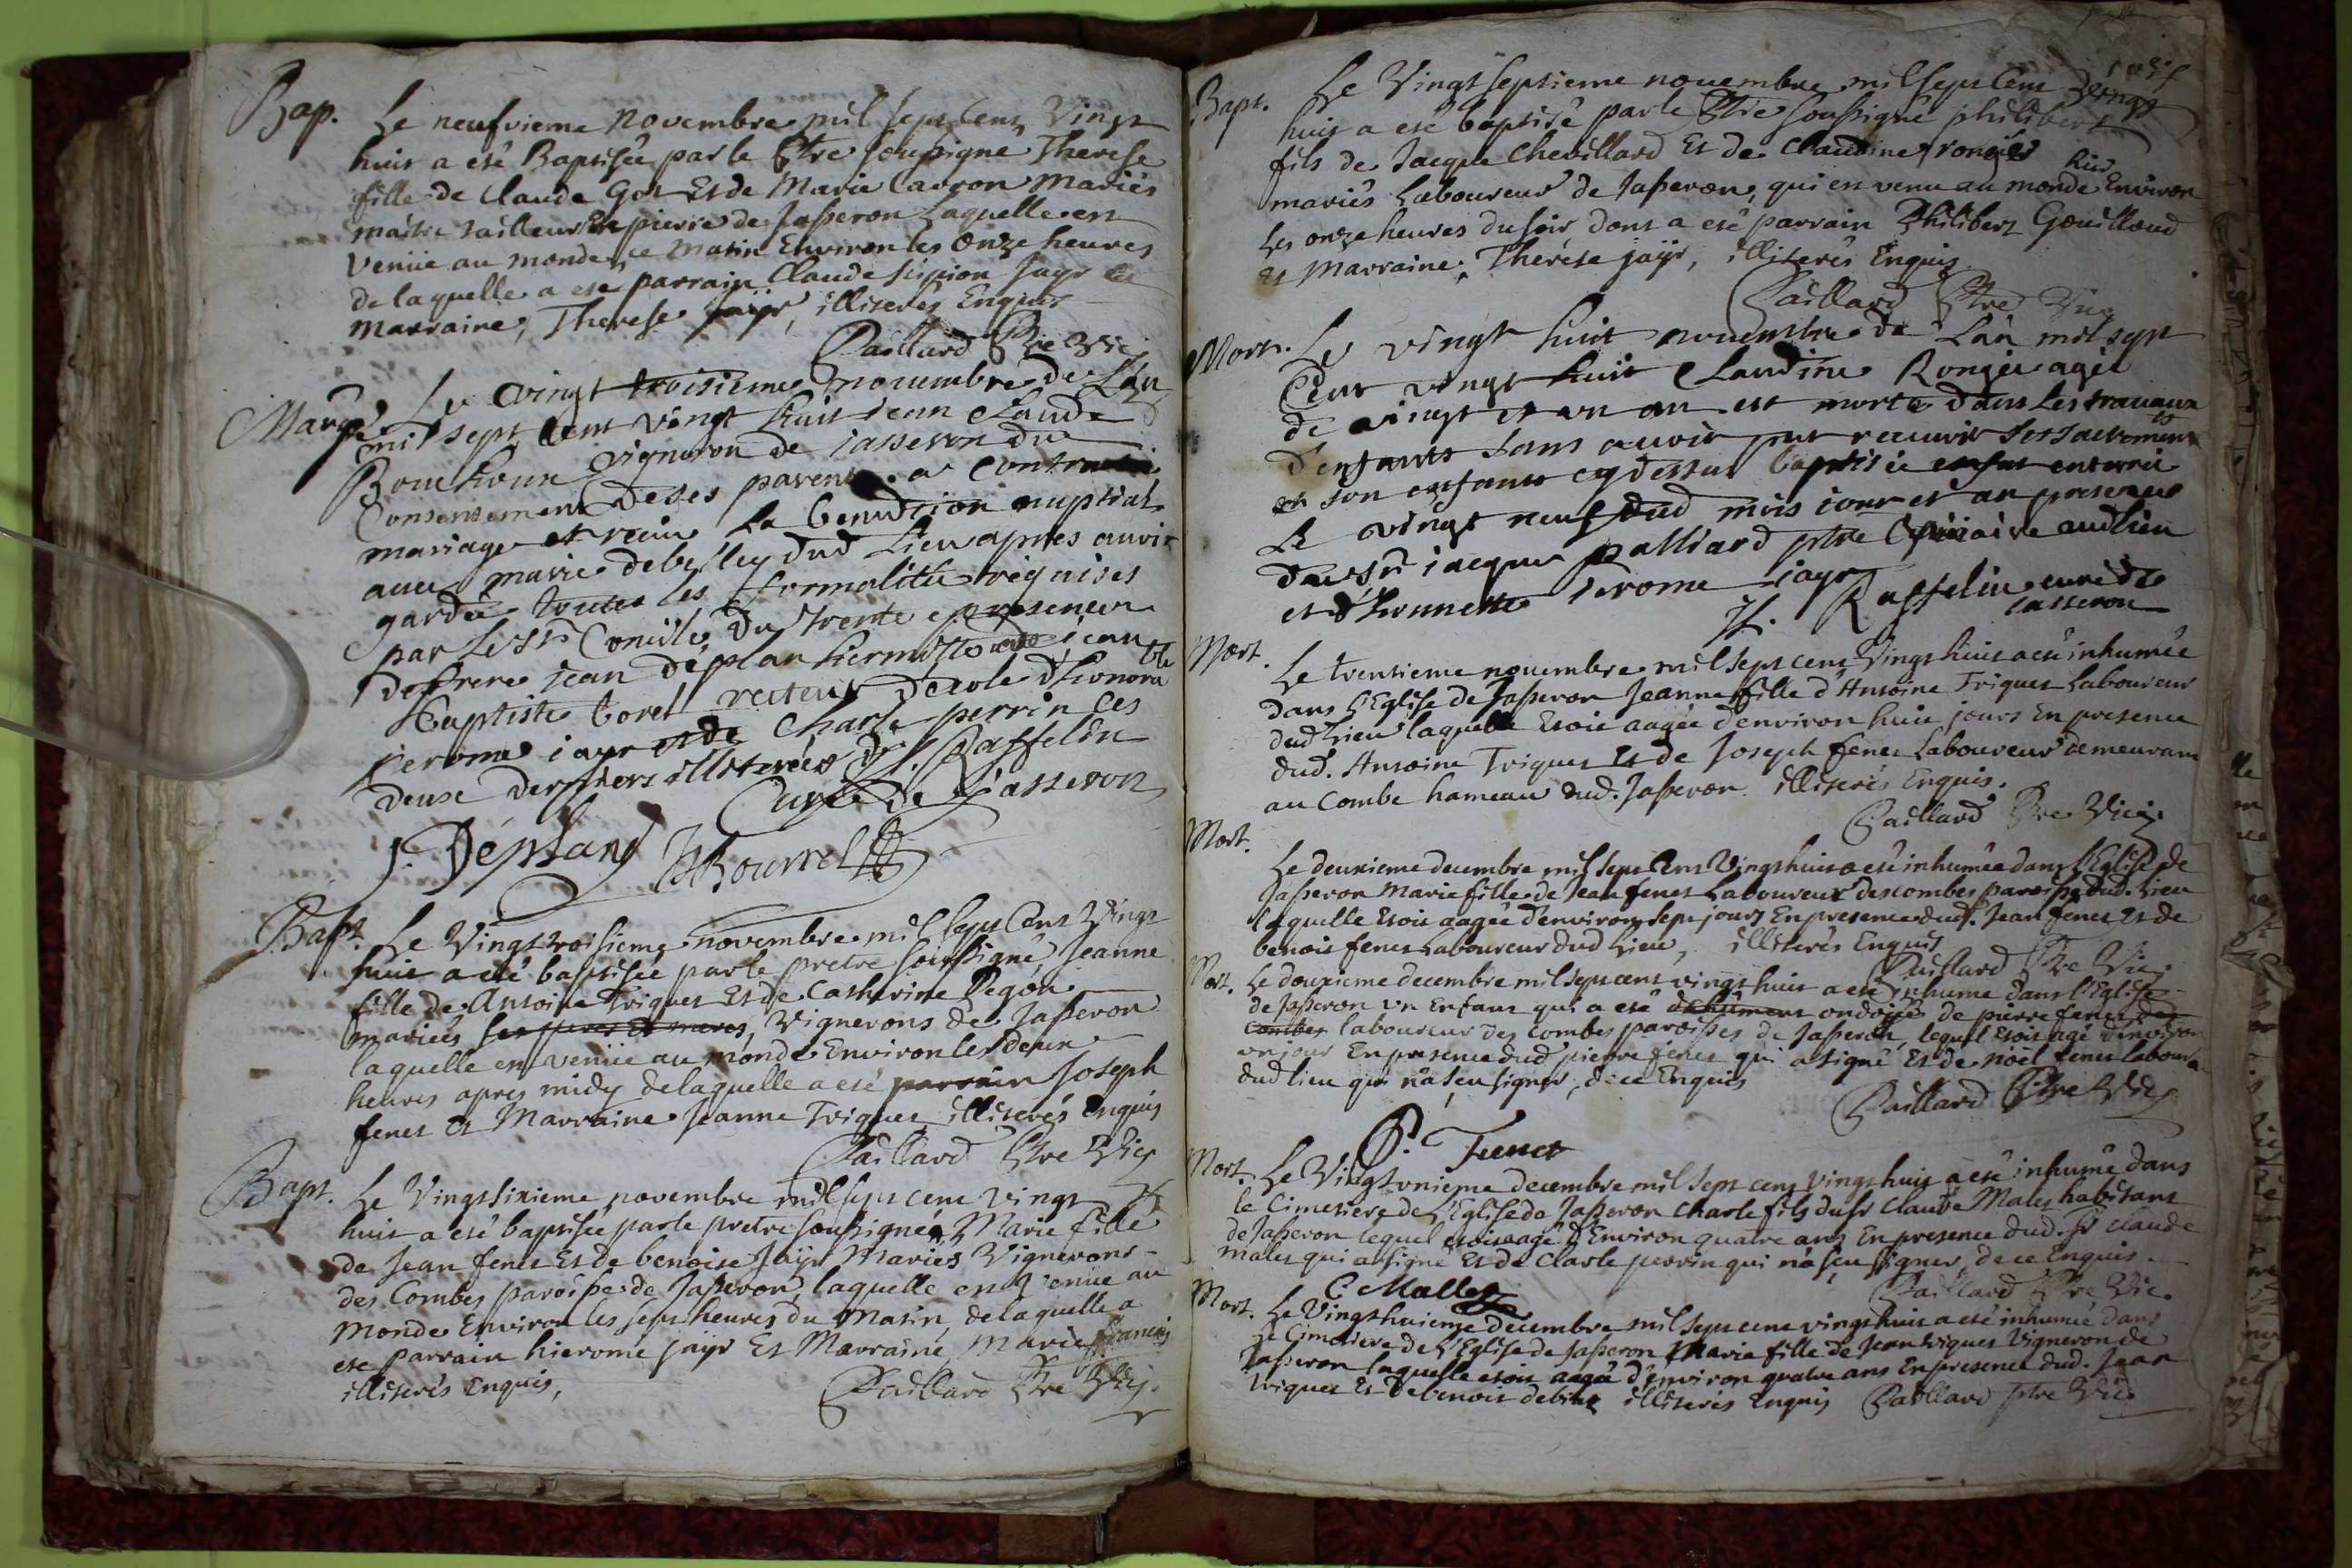 Bap. Le neufvieme Novembre mil sept Cens Vingt
huit a esté Baptisée par le Ptre soussigné Therese
fille de Claude Got Et de Marie Carron Mariés
maître tailleur En pierre de Jasseron Laquelle est
Venüe au monde ce matin Environ les Onze heures
de laquelle a esté parrain Claude scipion Jayr et
Marraine, Therese jaÿr, illiterés Enquis
Paillard Ptre Vic.
Mariage Le vingt troisieme novembre de L'an
mil sept Cent vingt huit jean Claude
Bouchoux vigneron de iasseron du
Consentement de ses parents a Contracté
mariage et receu La benediction nuptiale
avec marie debelley dud Lieu apres avoir
gardée toutes les formalités requises
par Le st Concile du trente en presence
de frere jean déplan hiermitte et de jean
Baptiste borel recteur d'ecole d'honorable
jerome jayr et de Charle perrin Ces
deux derniers illiterés J. Raffelin
Curé de jasseron
J. Déplans JBourrel
Bapt. Le Vingt troisieme novembre mil sept Cens Vingt
huit a esté baptisée par le pretre soussigné Jeanne
fille de Antoine Triquet Et de Catherine Pegon
mariés ses peres et meres, Vignerons de Jasseron
laquelle est venüe au monde Environ les deux
heures apres midy de laquelle a esté parrain Joseph
fenet Et Marraine Jeanne Triquet illiterés Enquis
Paillard Ptre Vic.
Bapt. Le Vingt sixieme novembre mil sept cens vingt
huit a esté baptisée par le pretre soussigné Marie fille
de Jean fenet Et de benoise Jaÿr Mariés Vignerons
des Combes paroisse de Jasseron, laquelle est Venüe au
Monde Environ les sept heures du Matin, de laquelle a
esté parrain hierome jaÿr Et Marraine Marie francois
illiterés Enquis, Paillard Ptre Vic.
Bapt. Le Vingt septieme novembre mil sept Cens Vingt
huit a esté baptisé par le Ptre soussigné philibert
fils de Jacque Chevillard Et de Claudine rongier
mariés Laboureur de Jasseron, qui est venu au monde hier Environ
Les onze heures du soir, dont a esté parrain Philibert Gouilloud
et Marraine, Therése jaÿr, illiterés Enquis
Paillard Ptre Vic
Mort. Le vingt huit novembre de L'an mil sept
Cent vingt huit Claudine Rongier agée
de vingt et un an est morte dans Les travaux
d'enfants sans avoir put recevoir ses sacrements
et son enfant cy dessus baptisé enfut enterrée
Le vingt neuf dud mois jour et an presence
du sr jacque palliard ptre Vicaire aud lieu
et d'honneste jerome jayr
J. Raffelin curé de
iasseron
Mort. Le trentieme novembre mil sept cens Vingt huit a esté inhumée
dans l'Eglise de Jasseron Jeanne fille d'Antoine Triquet Laboureur
dud Lieu laquelle Etoit aagée d'environ huit jours En presence
dud. Antoine Triquet Et de Joseph fenet Laboureur demeurant
au Combe hameau dud. Jasseron illiterés Enquis.
Paillard Ptre Vic.
Mort. Le deuxieme decembre mil sept Cens Vingt huit a esté inhumée dans l'Eglise de
Jasseron Marie fille de Jean fenet Laboureur des combes paroisse dud. Lieu
laquelle Etoit aagée d'environ sept jours En presence dud. Jean fenet et de
benoit fenet Laboureur dud Lieu, illiterés Enquis
Paillard Ptre Vic.
Mort. Le douxieme decembre mil sept cens vingt huit a esté inhume dans l'Eglise
de Jasseron un Enfant qui a esté ondoyé de pierre fenet des
Combes laboureur des Combes paroisses de Jasseron, lequel Etoit agé d'environ
un jour En presence dud pierre fenet qui a signé Et de noël fenet labour
dud lieu qui n'a sçeu signer, de ce Enquis
Paillard Ptre Vic
P. Fenet
Mort. Le Vingt vnieme decembre mil sept cens vingt huit a esté inhumé dans
le Cimetiere de l'Eglise de Jasseron Charle fils du sr Claude Malet habitant
de Jasseron lequel etoit aagé d'Environ quatre ans En presence dud. Sr Claude
malet qui a signé Et de Charle perrin qui n'a sçeu signer, de ce Enquis
C Mallet Paillard Ptre Vic.
Mort. Le Vingt huitieme decembre mil sept cens vingt huit a esté inhumée dans
Le Cimetiere de l'Eglise de Jasseron Marie fille de Jean triquet Vigneron de
Jasseron laquelle etoit aagée d'environ quatre ans En presence dud. Jean
triquet Et de benoit debelley illiterés Enquis Paillard ptre Vic.